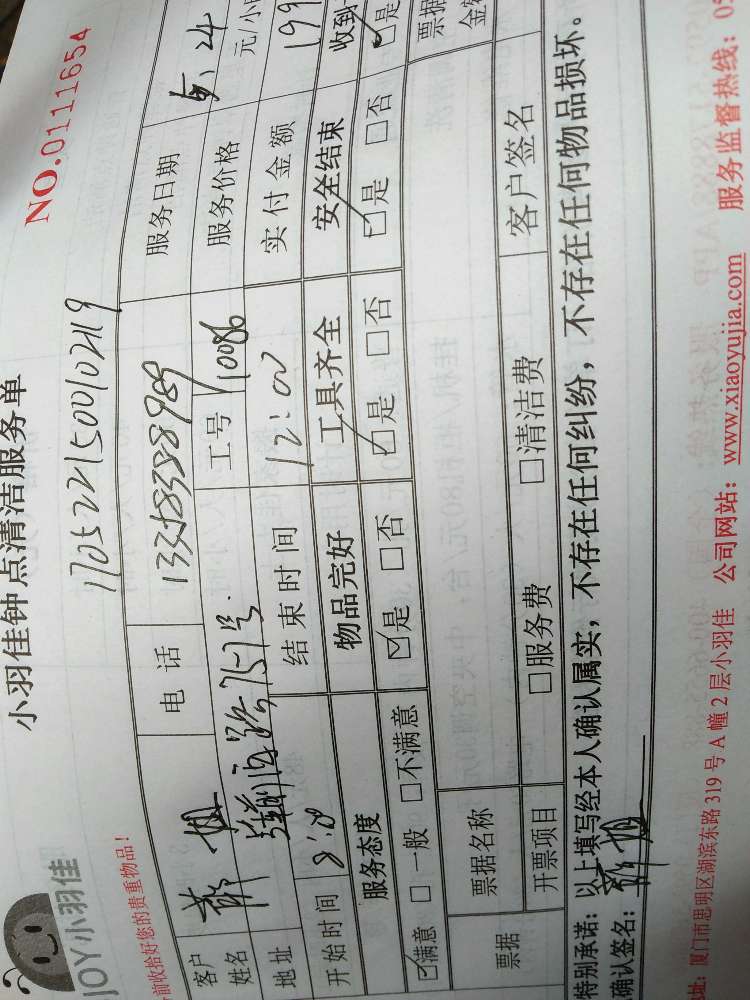 小羽佳钟点清洁服务单
JOY小羽佳
NO.01111654
1705221500102119
前收拾好您的贵重物品!
客户姓名 电话 13358328989 服务日期 5.24
地址 工号 10086 服务价格 元/小
开始时间 8:00 结束时间 12:00 实付金额 199
服务态度 物品完好 工具齐全 安全结束 收到
☑满意 □一般 □不满意 ☑是 □否 ☑是 □否 ☑是 □否 ☑是
票据 票据名称 票据金
开票项目 □服务费 □清洁费 客户签名
特别承诺:以上填写经本人确认属实,不存在任何纠纷,不存在任何物品损坏。
确认签名:
址:厦门市思明区湖滨东路319号A幢2层小羽佳 公司网站:www.xiaoyujia.com 服务监督热线:05